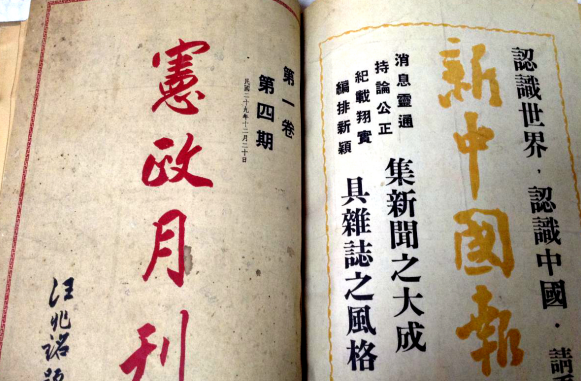 認識世界，認識中國．請
新中國報
集新聞之大成
具雜誌之風格
消息靈通
持論公正
紀載翔實
編排新穎
第一卷
第四期
民國二十九年十二月二十日
憲政月刊
汪兆銘題